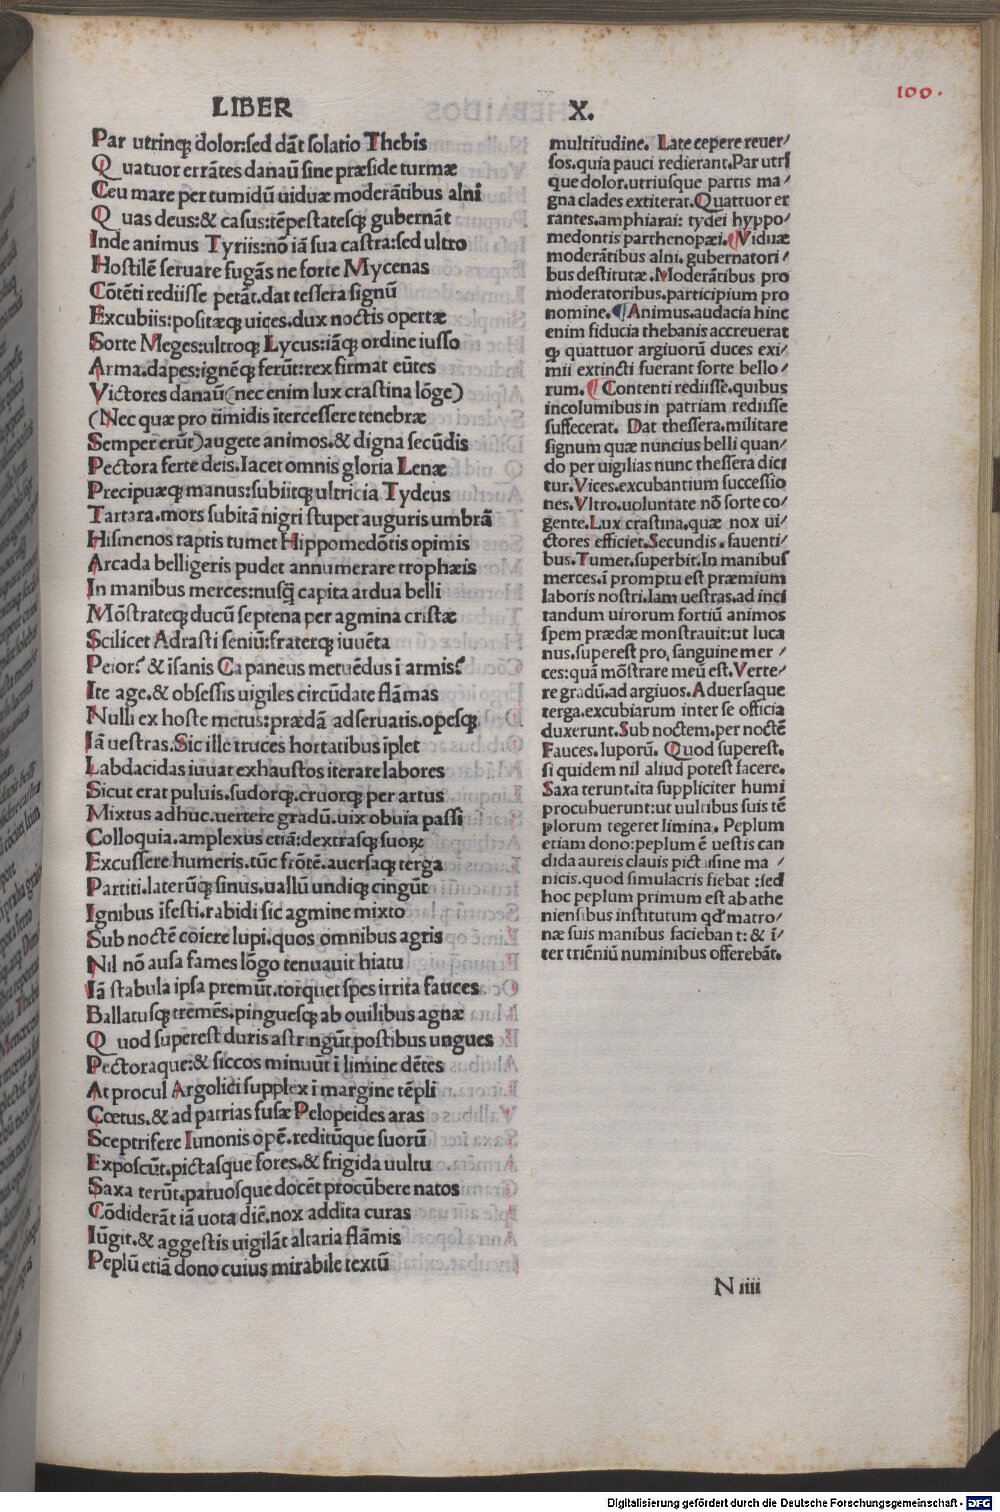 100.
LIBER X.
Par utrinq; dolor:sed dāt solatio Thebis
Q uatuor errātes danaū sine præside turmæ
Ceu mare per tumidū uiduæ moderātibus alni
Q uas deus:& casus:tēpestatesq; gubernāt
Inde animus Tyriis:nō iā sua castra:sed ultro
Hostilē seruare fugās ne forte Mycenas
Cōtēti rediisse petāt.dat tessera signū
Excubiis:positæq; uices.dux noctis opertæ
Sorte Meges:ultroq; Lycus:iāq; ordine iusso
Arma.dapes:ignēq; ferūt:rex firmat eūtes
Victores danaū(nec enim lux crastina lōge)
(Nec quæ pro timidis ītercessere tenebræ
Semper erūt)augete animos.& digna secūdis
Pectora ferte deis.Iacet omnis gloria Lenæ
Precipuæq; manus:subiitq; ultricia Tydeus
Tartara.mors subitā nigri stupet auguris umbrā
Hismenos raptis tumet Hippomedōtis opimis
Arcada belligeris pudet annumerare trophæis
In manibus merces:nusq̄ capita ardua belli
Mōstrateq; ducū septena per agmina cristæ
Scilicet Adrasti seniū:fraterq; iuuēta
Peior? & īsanis Capaneus metuēdus ī armis?
Ite age.& obsessis uigiles circūdate flāmas
Nulli ex hoste metus:prædā adseruatis.opesq;
Iā uestras.Sic ille truces hortatibus īplet
Labdacidas iuuat exhaustos iterare labores
Sicut erat puluis.sudorq;.cruorq; per artus
Mixtus adhuc.uertere gradū.uix obuia passi
Colloquia.amplexus etiā:dextrasq; suoꝝ
Excussere humeris.tūc frōtē.auersaq; terga
Partiti.laterūq; sinus.uallū undiq; cingūt
Ignibus īfesti.rabidi sic agmine mixto
Sub noctē coiere lupi.quos omnibus agris
Nil nō ausa fames lōgo tenuauit hiatu
Iā stabula ipsa premūt.torquet spes irrita fauces
Ballatusq; tremēs.pinguesq; ab ouilibus agnæ
Q uod superest duris astringūt postibus ungues
Pectoraque:& siccos minuūt ī limine dētes
At procul Argolici supplex ī margine tēpli
Cœtus.& ad patrias fusæ Pelopeides aras
Sceptrifere Iunonis opē.reditūque suorū
Exposcūt.pictasque fores.& frigida uultu
Saxa terūt.paruosque docēt procūbere natos
Cōdiderāt iā uota diē.nox addita curas
Iūgit.& aggestis uigilāt altaria flāmis
Peplū etiā dono cuius mirabile textū
multitudine. Late cepere reuer/
sos.quia pauci redierant.Par utri
que dolor.utriusque partis ma/
gna clades extiterat.Quattuor er
rantes.amphiarai: tydei hyppo/
medontis parthenopæi.¶Viduæ
moderātibus alni. gubernatori/
bus destitutæ.Moderātibus pro
moderatoribus.participium pro
nomine.¶Animus.audacia hinc
enim fiducia thebanis accreuerat
q; quattuor argiuorū duces exi/
mii extincti fuerant sorte bello/
rum.¶Contenti rediisse.quibus
incolumibus in patriam rediisse
suffecerat. Dat thessera.militare
signum quæ nuncius belli quan/
do per uigilias nunc thessera dici
tur.Vices.excubantium successio
nes.Vltro.uoluntate nō sorte co/
gente.Lux crastina.quæ nox ui/
ctores efficiet.Secundis.fauenti/
bus.Tumet.superbit.In manibus
merces.ī promptu est præmium
laboris nostri.Iam uestras.ad inci
tandum uirorum fortiū animos
spem prædæ monstrauit:ut luca
nus.superest pro, sanguine mer/
ces:quā mōstrare meū est.Verte/
re gradū.ad argiuos.Aduersaque
terga.excubiarum inter se officia
duxerunt.Sub noctem.per noctē
Fauces.luporū. Quod superest.
si quidem nil aliud potest facere.
Saxa terunt.ita suppliciter humi
procubuerunt:ut uultibus suis tē
plorum tegeret limina. Peplum
etiam dono:peplum ē uestis can
dida aureis clauis picta:sine ma/
nicis.quod simulacris fiebat:sed
hoc peplum primum est ab athe
niensibus institutum qđ matro/
næ suis manibus faciebant:& ī/
ter triēniū numinibus offerebāt.
N iiii
Digitalisierung gefördert durch die Deutsche Forschungsgemeinschaft - DFG